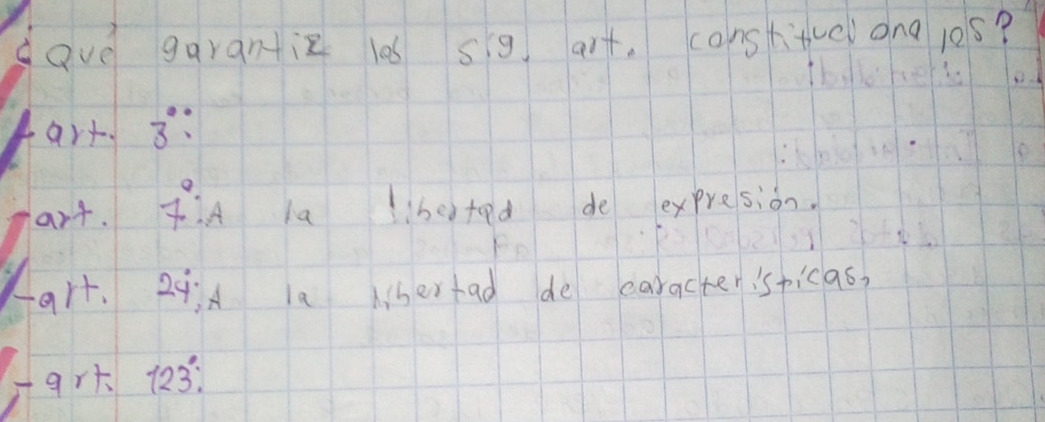 ¿Qué garantiz los sig. art. constitucionales?
- art. 3°:
- art. 7°: A la libertad de expresión.
- art. 24°: A la libertad de caracteristicas,
- art. 123°: